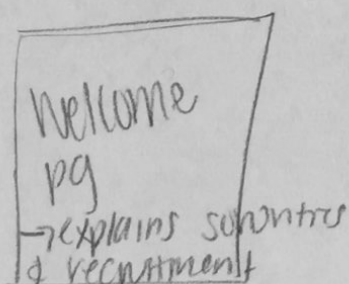 Welcome
pg
→ explains sororities
& recruitment